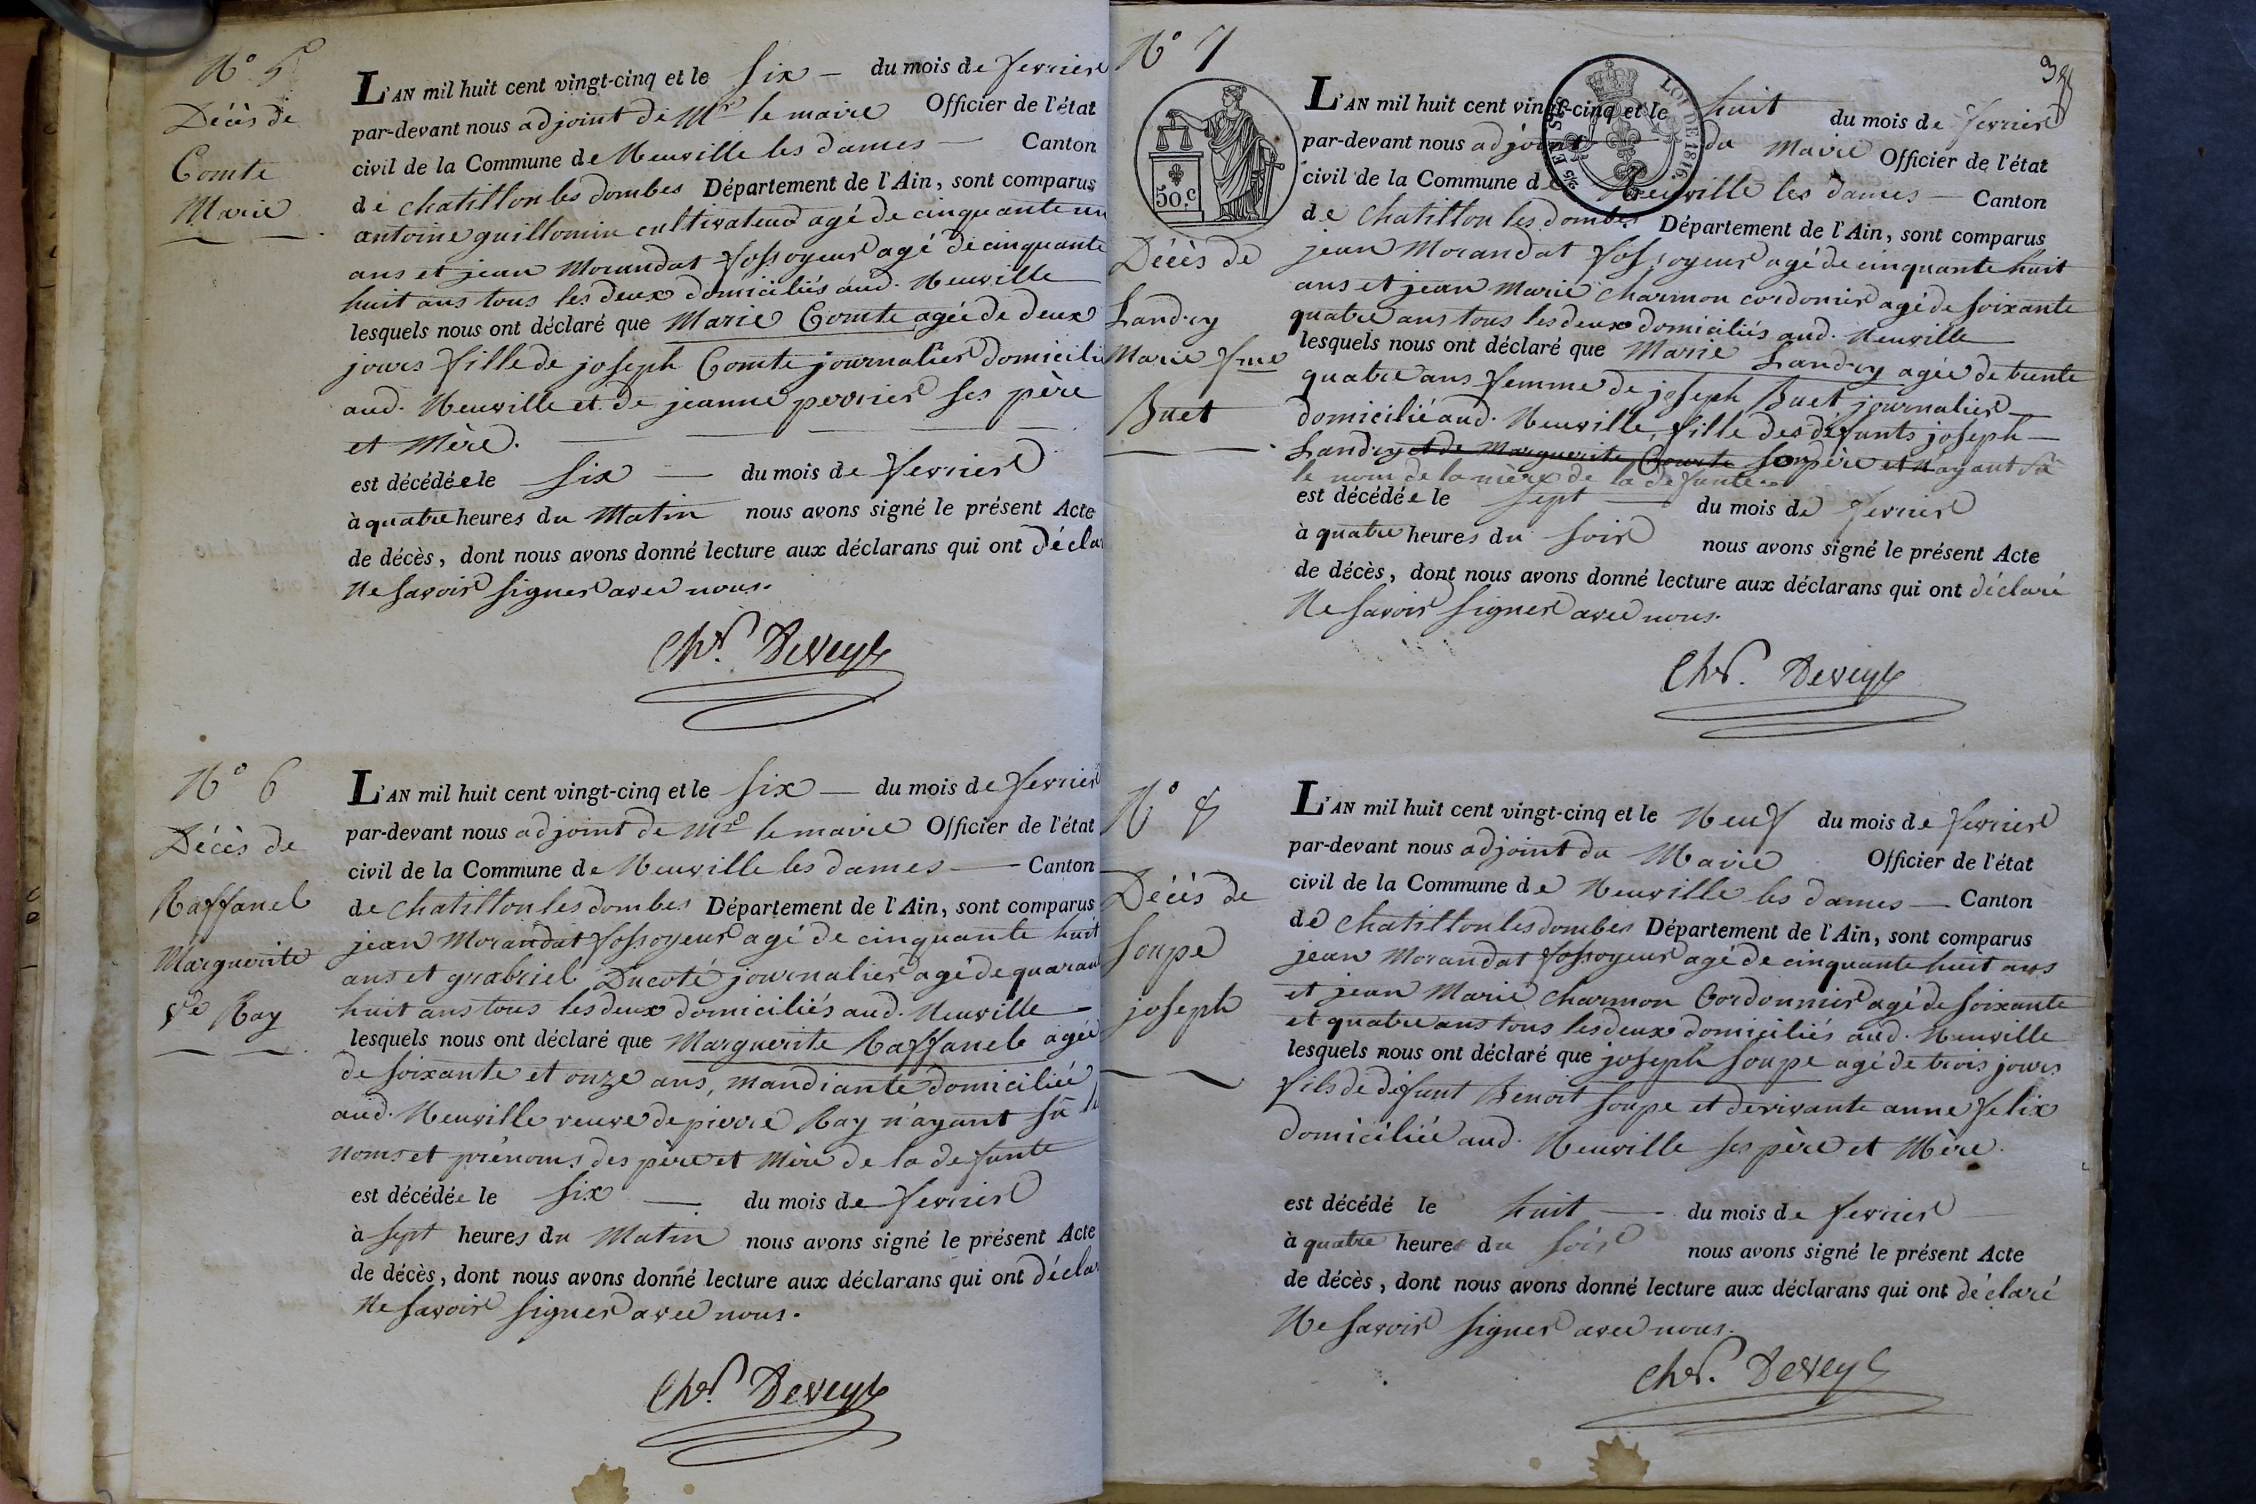 N° 5
Décès de
Comte
Marie
L'AN mil huit cent vingt-cinq et le six — du mois de fevrier
par-devant nous adjoint de Mr le maire Officier de l'état
civil de la Commune de Neuville les dames — Canton
de chatillon les dombes Département de l'Ain, sont comparus
antoine guillomin cultivateur agé de cinquante un
ans et jean Morandat fossoyeur agé de cinquante
huit ans tous les deux domiciliés aud. Neuville
lesquels nous ont déclaré que Marie Comte agée de deux
jours fille de joseph Comte journalier domicilié
aud. Neuville et de jeanne perrier ses père
et Mère.
est décédée le six — du mois de fevrier
à quatre heures du Matin nous avons signé le présent Acte
de décès, dont nous avons donné lecture aux déclarans qui ont décla
Ne savoir signer avec nous.
Chr. Deveyle
N° 6
Décès de
Raffanel
Marguerite
Ve Ray
L'AN mil huit cent vingt-cinq et le six — du mois de fevrier
par-devant nous adjoint de Mr le maire Officier de l'état
civil de la Commune de Neuville les dames — Canton
de chatillon les dombes Département de l'Ain, sont comparus
jean Morandat fossoyeur agé de cinquante huit
ans et grabriel Ducoté journalier agé de quaran
huit ans tous les deux domiciliés aud. Neuville —
lesquels nous ont déclaré que Marguerite Raffanel agée
de soixante et onze ans, mandiante domiciliée
aud. Neuville veuve de pierre Ray n'ayant sû
noms et prénoms des père et Mère de la defunte
est décédée le six — du mois de fevrier
à sept heures du Matin nous avons signé le présent Acte
de décès, dont nous avons donné lecture aux déclarans qui ont décla
Ne savoir signer avec nous.
Chr. Deveyle
N° 7
50.c
LOI DE 1816.
Décès de
Landry
Marie fme
Buet
L'AN mil huit cent vingt-cinq et le huit du mois de fevrier
par-devant nous adjoint du Maire Officier de l'état
civil de la Commune de Neuville les dames — Canton
de chatillon les dombes Département de l'Ain, sont comparus
jean Morandat fossoyeur agé de cinquante huit
ans et jean Marie Charmon cordonier agé de soixante
quatre ans tous les deux domiciliés aud. Neuville
lesquels nous ont déclaré que Marie Landry agée de trente
quatre ans femme de joseph Buet journalier
domicilié aud. Neuville, fille des défunts joseph —
Landry et de Marguerite Comte son père et n'ayant sû
le nom de la mère de la defunte
est décédée le sept — du mois de fevrier
à quatre heures du soir nous avons signé le présent Acte
de décès, dont nous avons donné lecture aux déclarans qui ont déclaré
Ne savoir signer avec nous.
Chr. Deveyle
N° 8
Décès de
Soupe
joseph
L'AN mil huit cent vingt-cinq et le Neuf du mois de fevrier
par-devant nous adjoint du Maire Officier de l'état
civil de la Commune de Neuville les dames — Canton
de chatillon les dombes Département de l'Ain, sont comparus
jean Morandat fossoyeur agé de cinquante huit ans
et jean Marie Charmon Cordonnier agé de soixante
et quatre ans tous les deux domiciliés aud. Neuville
lesquels nous ont déclaré que joseph Soupe agé de trois jours
fils de défunt Benoit Soupe et de vivante anne felix
domiciliée aud. Neuville ses père et Mère.
est décédé le huit — du mois de fevrier
à quatre heures du soir nous avons signé le présent Acte
de décès, dont nous avons donné lecture aux déclarans qui ont déclaré
Ne savoir signer avec nous.
Chr. Deveyle